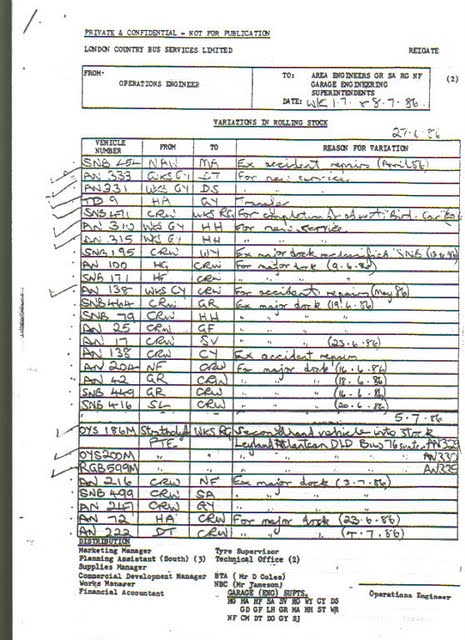 PRIVATE & CONFIDENTIAL - NOT FOR PUBLICATION
LONDON COUNTRY BUS SERVICES LIMITED REIGATE
FROM- OPERATIONS ENGINEER
TO: AREA ENGINEERS GR SA RG NF (2)
GARAGE ENGINEERING
SUPERINTENDENTS
DATE: WK 1.7. 8.7.86.
VARIATIONS IN ROLLING STOCK
27.6.86
VEHICLE NUMBER FROM TO REASON FOR VARIATION
SNB 454 NAW MA Ex accident repairs (April 86)
AN 333 WKS GY DT For new service
AN 231 WKS GY DS "
TD 9 HA GY Transfer
SNB 471 CRW WKS RG For completion of advert
AN 310 WKS GY HH For new service.
AN 315 WKS GY HH " "
SNB 195 CRW WY Ex major dock SNB
AN 100 HG CRW For major dock (9.6.86)
SNB 171 HF CRW " "
AN 138 WKS CY CRW For accident repairs (May 86)
SNB 464 CRW GR Ex major dock (19.6.86)
SNB 79 CRW HH " "
AN 25 CRW GF " "
AN 17 CRW SV " " (23.6.86)
AN 138 CRW CY Ex accident repairs
AN 204 NF CRW For major dock (16.6.86)
AN 42 GR CRW " " (18.6.86)
SNB 449 GR CRW " " (16.6.86)
SNB 416 SL CRW " " (20.6.86)
5.7.86
OYS 186M Strathclyde WKS RG Secondhand vehicle into stock
PTE. Leyland Atlantean D.L.D Bus 76 seater
OYS200M " " "
RGB599M " " "
AN 216 CRW NF Ex major dock (3.7.86)
SNB 499 CRW SA " "
AN 247 CRW GY " "
AN 72 HA CRW For major dock (23.6.86)
AN 222 DT CRW " " (4.7.86)
DISTRIBUTION
Marketing Manager Tyre Supervisor
Planning Assistant (South) (3) Technical Office (2)
Supplies Manager
Commercial Development Manager BTA (Mr D Coles)
Works Manager NBC (Mr Jameson)
Financial Accountant GARAGE (ENG) SUPTS. Operations Engineer
HG HA HF SA SV RG WY CY DS
GD GF LH GR MA HH ST WR
NF CM DT DG GY SJ